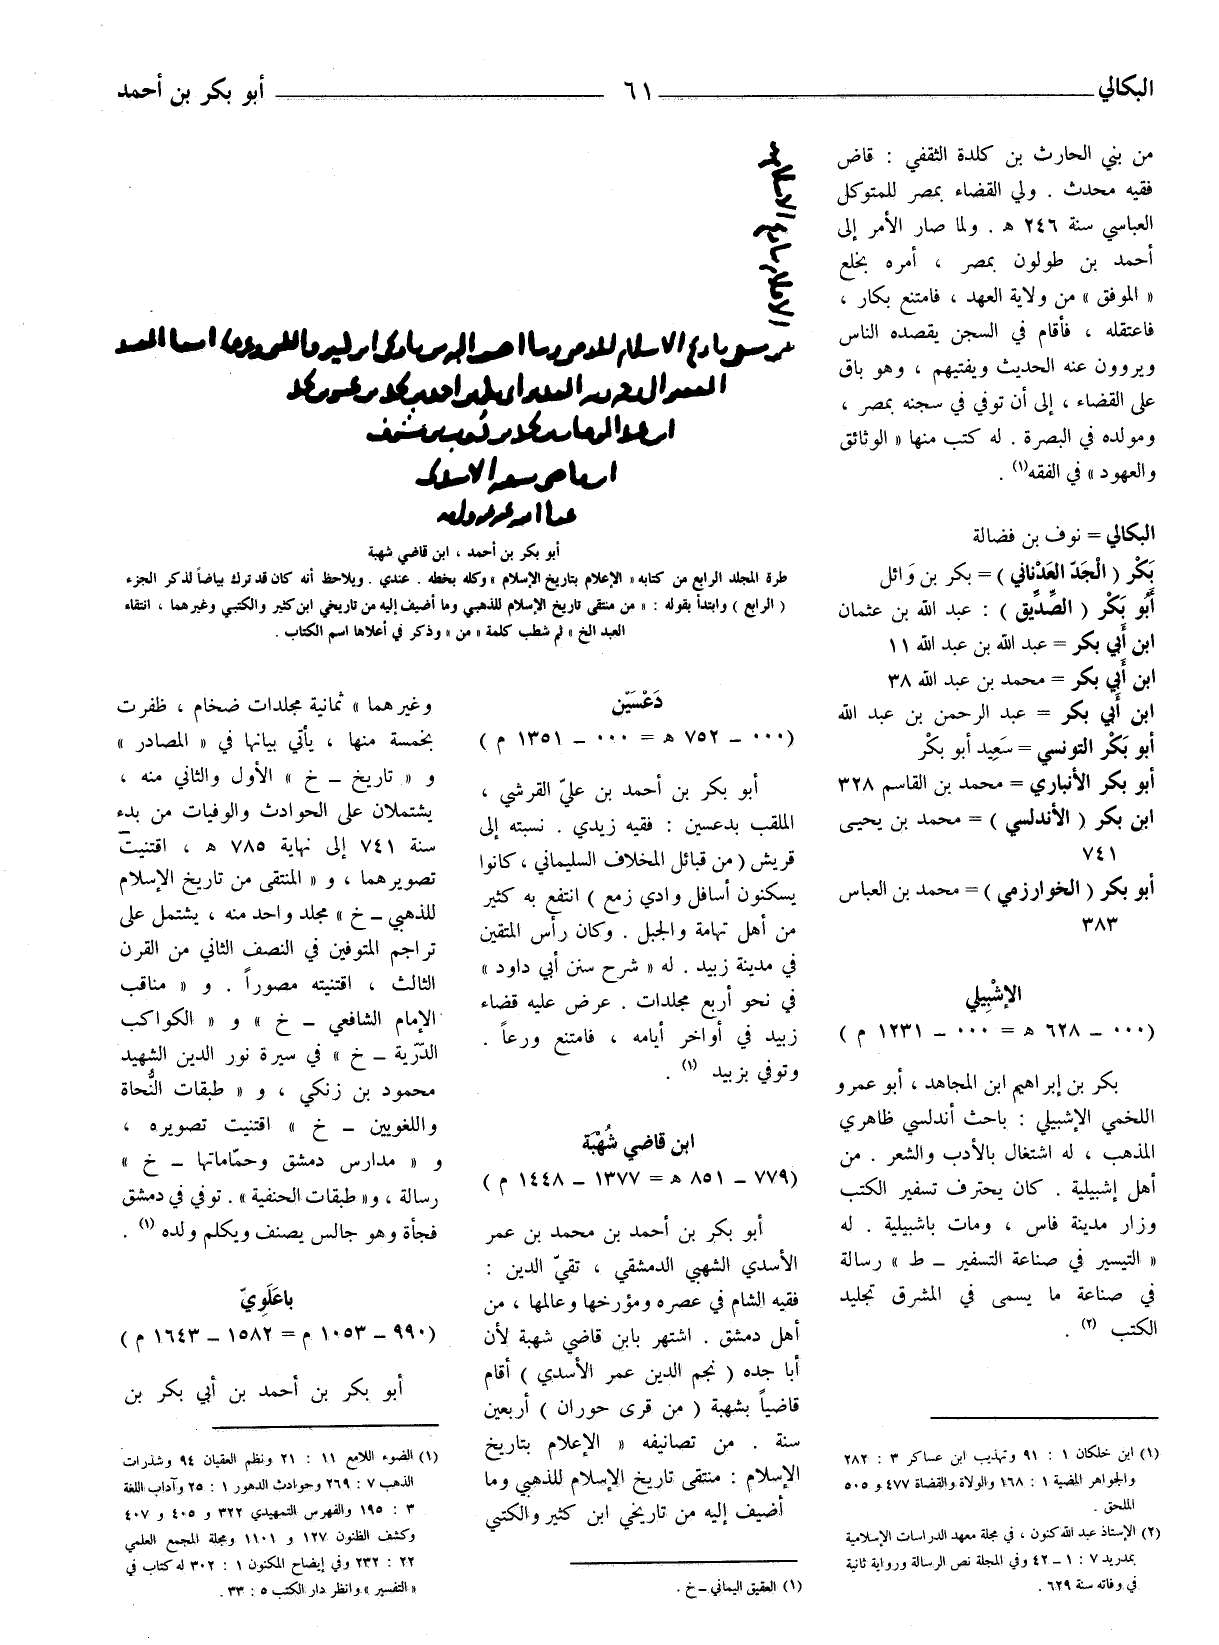 البكالي ــــــ ٦١ ــــــ أبو بكر بن أحمد
من بني الحارث بن كلدة الثقفي : قاض
فقيه محدث . ولي القضاء بمصر للمتوكل
العباسي سنة ٢٤٦ هـ . ولما صار الأمر إلى
أحمد بن طولون بمصر ، أمره بخلع
« الموفق » من ولاية العهد ، فامتنع بكار ،
فاعتقله ، فأقام في السجن يقصده الناس
ويروون عنه الحديث ويفتيهم ، وهو باق
على القضاء ، إلى أن توفي في سجنه بمصر ،
ومولده في البصرة . له كتب منها « الوثائق
والعهود » في الفقه (١) .
البكالي = نوف بن فضالة
بَكْر ( الْجَدّ العَدْناني ) = بكر بن وَائل
أَبُو بَكْر ( الصِّدِّيق ) : عبد الله بن عثمان
ابن أَبي بكر = عبد الله بن عبد الله ١١
ابن أَبي بكر = محمد بن عبد الله ٣٨
ابن أَبي بكر = عبد الرحمن بن عبد الله
أبو بَكْر التونسي = سَعِيد أبو بكْر
أبو بكر الأنباري = محمد بن القاسم ٣٢٨
ابن بكر ( الأندلسي ) = محمد بن يحيى
٧٤١
أبو بكر ( الخوارزمي ) = محمد بن العباس
٣٨٣
الإشْبِيلي
(٠٠٠ – ٦٢٨ هـ = ٠٠٠ – ١٢٣١ م )
بكر بن إبراهيم ابن المجاهد ، أبو عمرو
اللخمي الإشبيلي : باحث أندلسي ظاهري
المذهب ، له اشتغال بالأدب والشعر . من
أهل إشبيلية . كان يحترف تسفير الكتب
وزار مدينة فاس ، ومات باشبيلية . له
« التيسير في صناعة التسفير – ط » رسالة
في صناعة ما يسمى في المشرق تجليد
الكتب (٢) .
(١) ابن خلكان ١ : ٩١ وتهذيب ابن عساكر ٣ : ٢٨٢
والجواهر المضية ١ : ١٦٨ والولاة والقضاة ٤٧٧ و ٥٠٥
الملحق .
(٢) الإستاذ عبد الله كنون ، في مجلة معهد الدراسات الإسلامية
بمدريد ٧ : ١ – ٤٢ وفي المجلة نص الرسالة ورواية ثانية
في وفاته سنة ٦٢٩ .
أبو بكر بن أحمد ، ابن قاضي شهبة
طرة المجلد الرابع من كتابه « الإعلام بتاريخ الإسلام » وكله بخطه . عندي . ويلاحظ أنه كان قد ترك بياضاً لذكر الجزء
( الرابع ) وابتدأ بقوله : « من منتقى تاريخ الإسلام للذهبي وما أضيف إليه من تاريخي ابن كثير والكتبي وغيرهما ، انتقاء
العبد الخ » ثم شطب كلمة « من » وذكر في أعلاها اسم الكتاب .
دَعْسَيْن
(٠٠٠ – ٧٥٢ هـ = ٠٠٠ – ١٣٥١ م )
أبو بكر بن أحمد بن عليّ القرشي ،
الملقب بدعسين : فقيه زبيدي . نسبته إلى
قريش ( من قبائل المخلاف السليماني ، كانوا
يسكنون أسافل وادي زمع ) انتفع به كثير
من أهل تهامة والجبل . وكان رأس المتقين
في مدينة زبيد . له « شرح سنن أبي داود »
في نحو أربع مجلدات . عرض عليه قضاء
زبيد في أواخر أيامه ، فامتنع ورعاً .
وتوفي بزبيد (١) .
ابن قاضي شُهْبَة
(٧٧٩ – ٨٥١ هـ = ١٣٧٧ – ١٤٤٨ م )
أبو بكر بن أحمد بن محمد بن عمر
الأسدي الشهبي الدمشقي ، تقيّ الدين :
فقيه الشام في عصره ومؤرخها وعالمها ، من
أهل دمشق . اشتهر بابن قاضي شهبة لأن
أبا جده ( نجم الدين عمر الأسدي ) أقام
قاضياً بشهبة ( من قرى حوران ) أربعين
سنة . من تصانيفه « الإعلام بتاريخ
الإسلام : منتقى تاريخ الإسلام للذهبي وما
أضيف إليه من تاريخي ابن كثير والكتبي
(١) العقيق اليماني – خ .
وغيرهما » ثمانية مجلدات ضخام ، ظفرت
بخمسة منها ، يأتي بيانها في « المصادر »
و « تاريخ – خ » الأول والثاني منه ،
يشتملان على الحوادث والوفيات من بدء
سنة ٧٤١ إلى نهاية ٧٨٥ هـ ، اقتنيت
تصويرهما ، و « المنتقى من تاريخ الإسلام
للذهبي – خ » مجلد واحد منه ، يشتمل على
تراجم المتوفين في النصف الثاني من القرن
الثالث ، اقتنيته مصوراً . و « مناقب
الإمام الشافعي – خ » و « الكواكب
الدّرّية – خ » في سيرة نور الدين الشهيد
محمود بن زنكي ، و « طبقات النُّحاة
واللغويين – خ » اقتنيت تصويره ،
و « مدارس دمشق وحمّاماتها – خ »
رسالة ، و« طبقات الحنفية » . توفي في دمشق
فجأة وهو جالس يصنف ويكلم ولده (١) .
باعَلَوِيّ
(٩٩٠ – ١٠٥٣ م = ١٥٨٢ – ١٦٤٣ م )
أبو بكر بن أحمد بن أبي بكر بن
(١) الضوء اللامع ١١ : ٢١ ونظم العقيان ٩٤ وشذرات
الذهب ٧ : ٢٦٩ وحوادث الدهور ١ : ٢٥ وآداب اللغة
٣ : ١٩٥ والفهرس التمهيدي ٣٢٢ و ٤٠٥ و ٤٠٧
وكشف الظنون ١٢٧ و ١١٠١ ومجلة المجمع العلمي
٢٢ : ٢٣٢ وفي إيضاح المكنون ١ : ٣٠٢ له كتاب في
« التفسير » وانظر دار الكتب ٥ : ٣٣ .